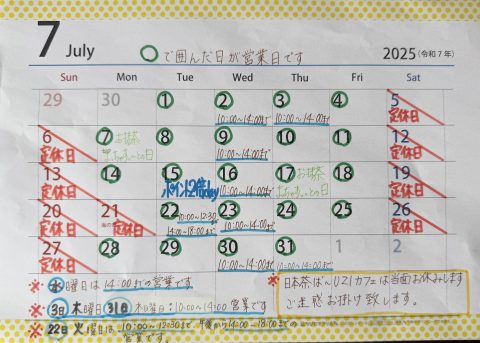 7 July
○で囲んだ日が営業日です
2025(令和7年)
Sun Mon Tue Wed Thu Fri Sat
29 30 1 2 3 4 5
10:00~14:00まで 10:00~14:00まで 定休日
6 7 お抹茶 8 9 10 11 12
定休日 の日 10:00~14:00まで 定休日
13 14 15 16 17 お抹茶 18 19
定休日 ポイント2倍day 10:00~14:00まで の日 定休日
20 21 22 10:00~12:30 23 24 25 26
定休日 海の日 定休日 14:00~18:00まで 10:00~14:00まで 定休日
27 28 29 30 31 1 2
定休日 10:00~14:00まで 10:00~14:00
※水曜日は14:00までの営業です
※3日木曜日31日木曜日:10:00~14:00営業です
※22日火曜日は、10:00~12:30まで 午後から14:00~18:00までの
営業です。
※日本茶ばーUZUカフェは当面お休みします
ご迷惑お掛け致します。